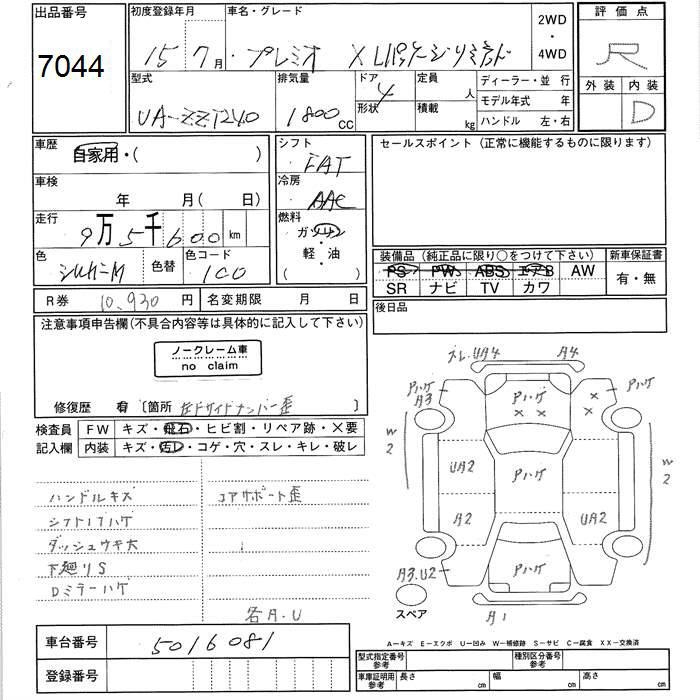 出品番号
7044
初度登録年月
15 7月
車名・グレード
プレミオ X Lパッケージリミテッド
2WD
・
4WD
評価点
R
外装 内装
D
型式
UA-ZZT240
排気量
1800 CC
ドア
4
形状
定員
人
積載
kg
ディーラー・並 行
モデル年式 年
ハンドル 左・右
車歴
自家用・( )
車検
年 月( 日)
走行
9万5千600km
色
シルバーM
色替
色コード
1C0
シフト
FAT
冷房
AAC
燃料
ガソリン
・
軽・油
( )
セールスポイント(正常に機能するものに限ります)
装備品(純正品に限り○をつけて下さい)
PS PW ABS エアB AW
SR ナビ TV カワ
新車保証書
有・無
R券 10,930円
名変期限 月 日
後日品
注意事項申告欄(不具合内容等は具体的に記入して下さい)
ノークレーム車
no claim
修復歴 有 [箇所 左Fサイドメンバー歪 ]
検査員
記入欄
FW キズ・飛石・ヒビ割・リペア跡・×要
内装 キズ・汚レ・コゲ・穴・スレ・キレ・破レ
ハンドルキズ
シフトノブハゲ
ダッシュウキ大
下廻りS
Dミラーハゲ
コアサポート歪
各A.U
プレ.UA4
A4
Pハゲ
A3
Pハゲ
× ×
×
×
Pハゲ
W2
UA2
Pハゲ
W2
A2
UA2
A3.U2
Pハゲ
A1
スペア
車台番号
5016081
登録番号
A―キズ E―エクボ U―凹み W―補修跡 S―サビ C―腐食 XX―交換済
型式指定番号
参考
種別区分番号
参考
車庫証明用
参考
長さ cm
幅 cm
高さ cm